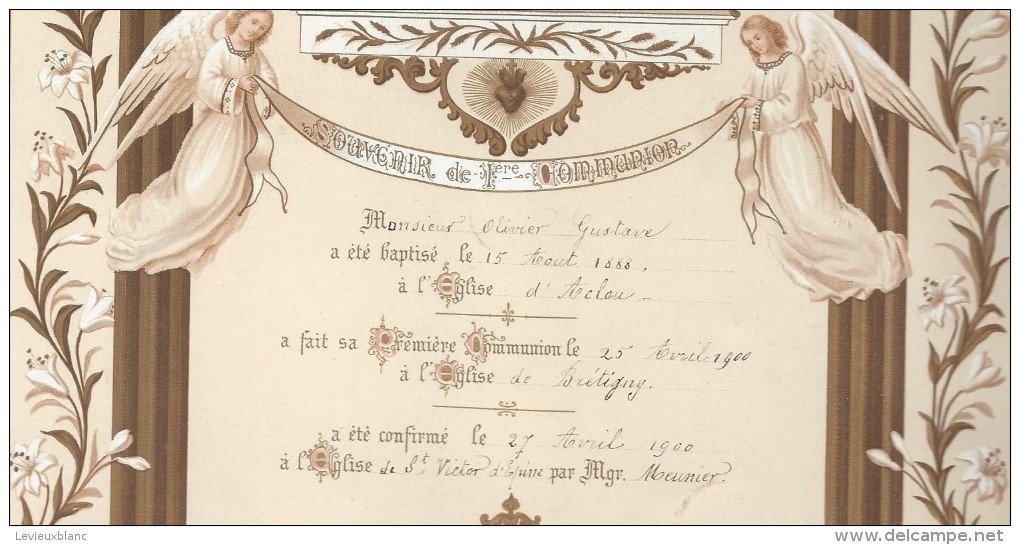 Souvenir de 1ère Communion
Monsieur Olivier Gustave
a été baptisé le 15 Aout 1888,
à l'Eglise d'Aclou
a fait sa Première Communion le 25 Avril 1900
à l'Eglise de Brétigny.
a été confirmé le 27 Avril 1900
à l'Eglise de St Victor d'Epine par Mgr. Meunier.
Levieuxblanc
www.delcampe.net